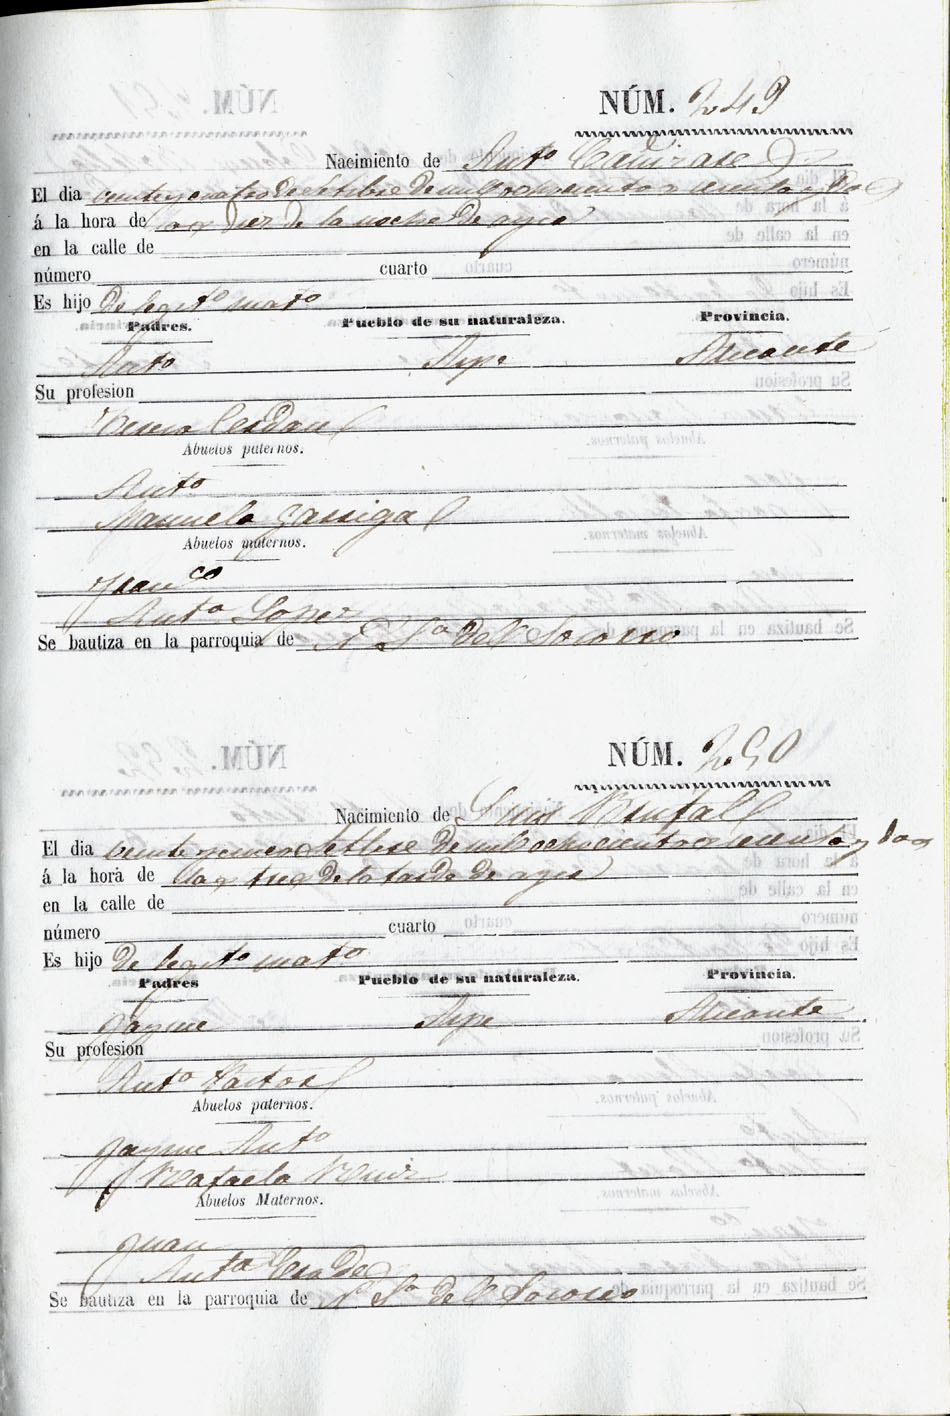 NÚM. 249
Nacimiento de Antº Cañizare
El dia veinte y cuatro de Setbre de mil ochocientos sesenta y dos
á la hora de las diez de la noche de ayer
en la calle de
número cuarto
Es hijo de legitº matº
Padres. Pueblo de su naturaleza. Provincia.
Antº Aspe Alicante
Su profesion
Teresa Cerdan
Abuelos paternos.
Antº
Manuela
Abuelos maternos.
Franco
Anta Lopez
Se bautiza en la parroquia de N Sa del Socorro
NÚM. 250
Nacimiento de Luis
El dia veinte y Setbre de mil ochocientos sesenta y dos
á la hora de las tres de la tarde de ayer
en la calle de
número cuarto
Es hijo de legitº matº
Padres Pueblo de su naturaleza. Provincia.
Jayme Aspe Alicante
Su profesion
Anta Pastor
Abuelos paternos.
Jayme Antº
Rafaela
Abuelos Maternos.
Juan
Anta
Se bautiza en la parroquia de N Sa del Socorro